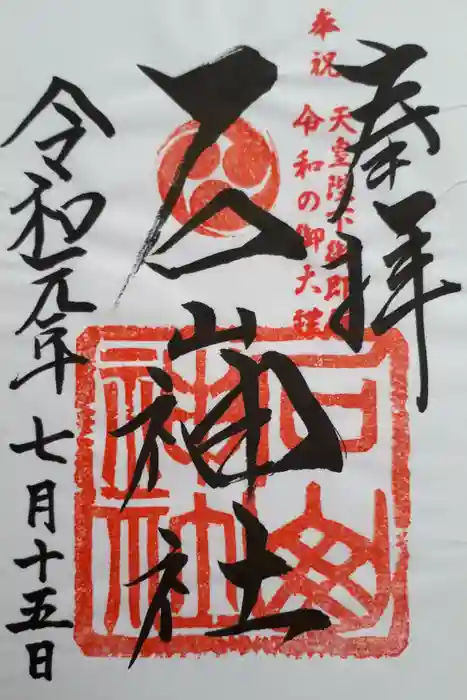 奉拝
奉祝 天皇陛下御即位
令和の御大礼
石山神社
令和元年七月十五日